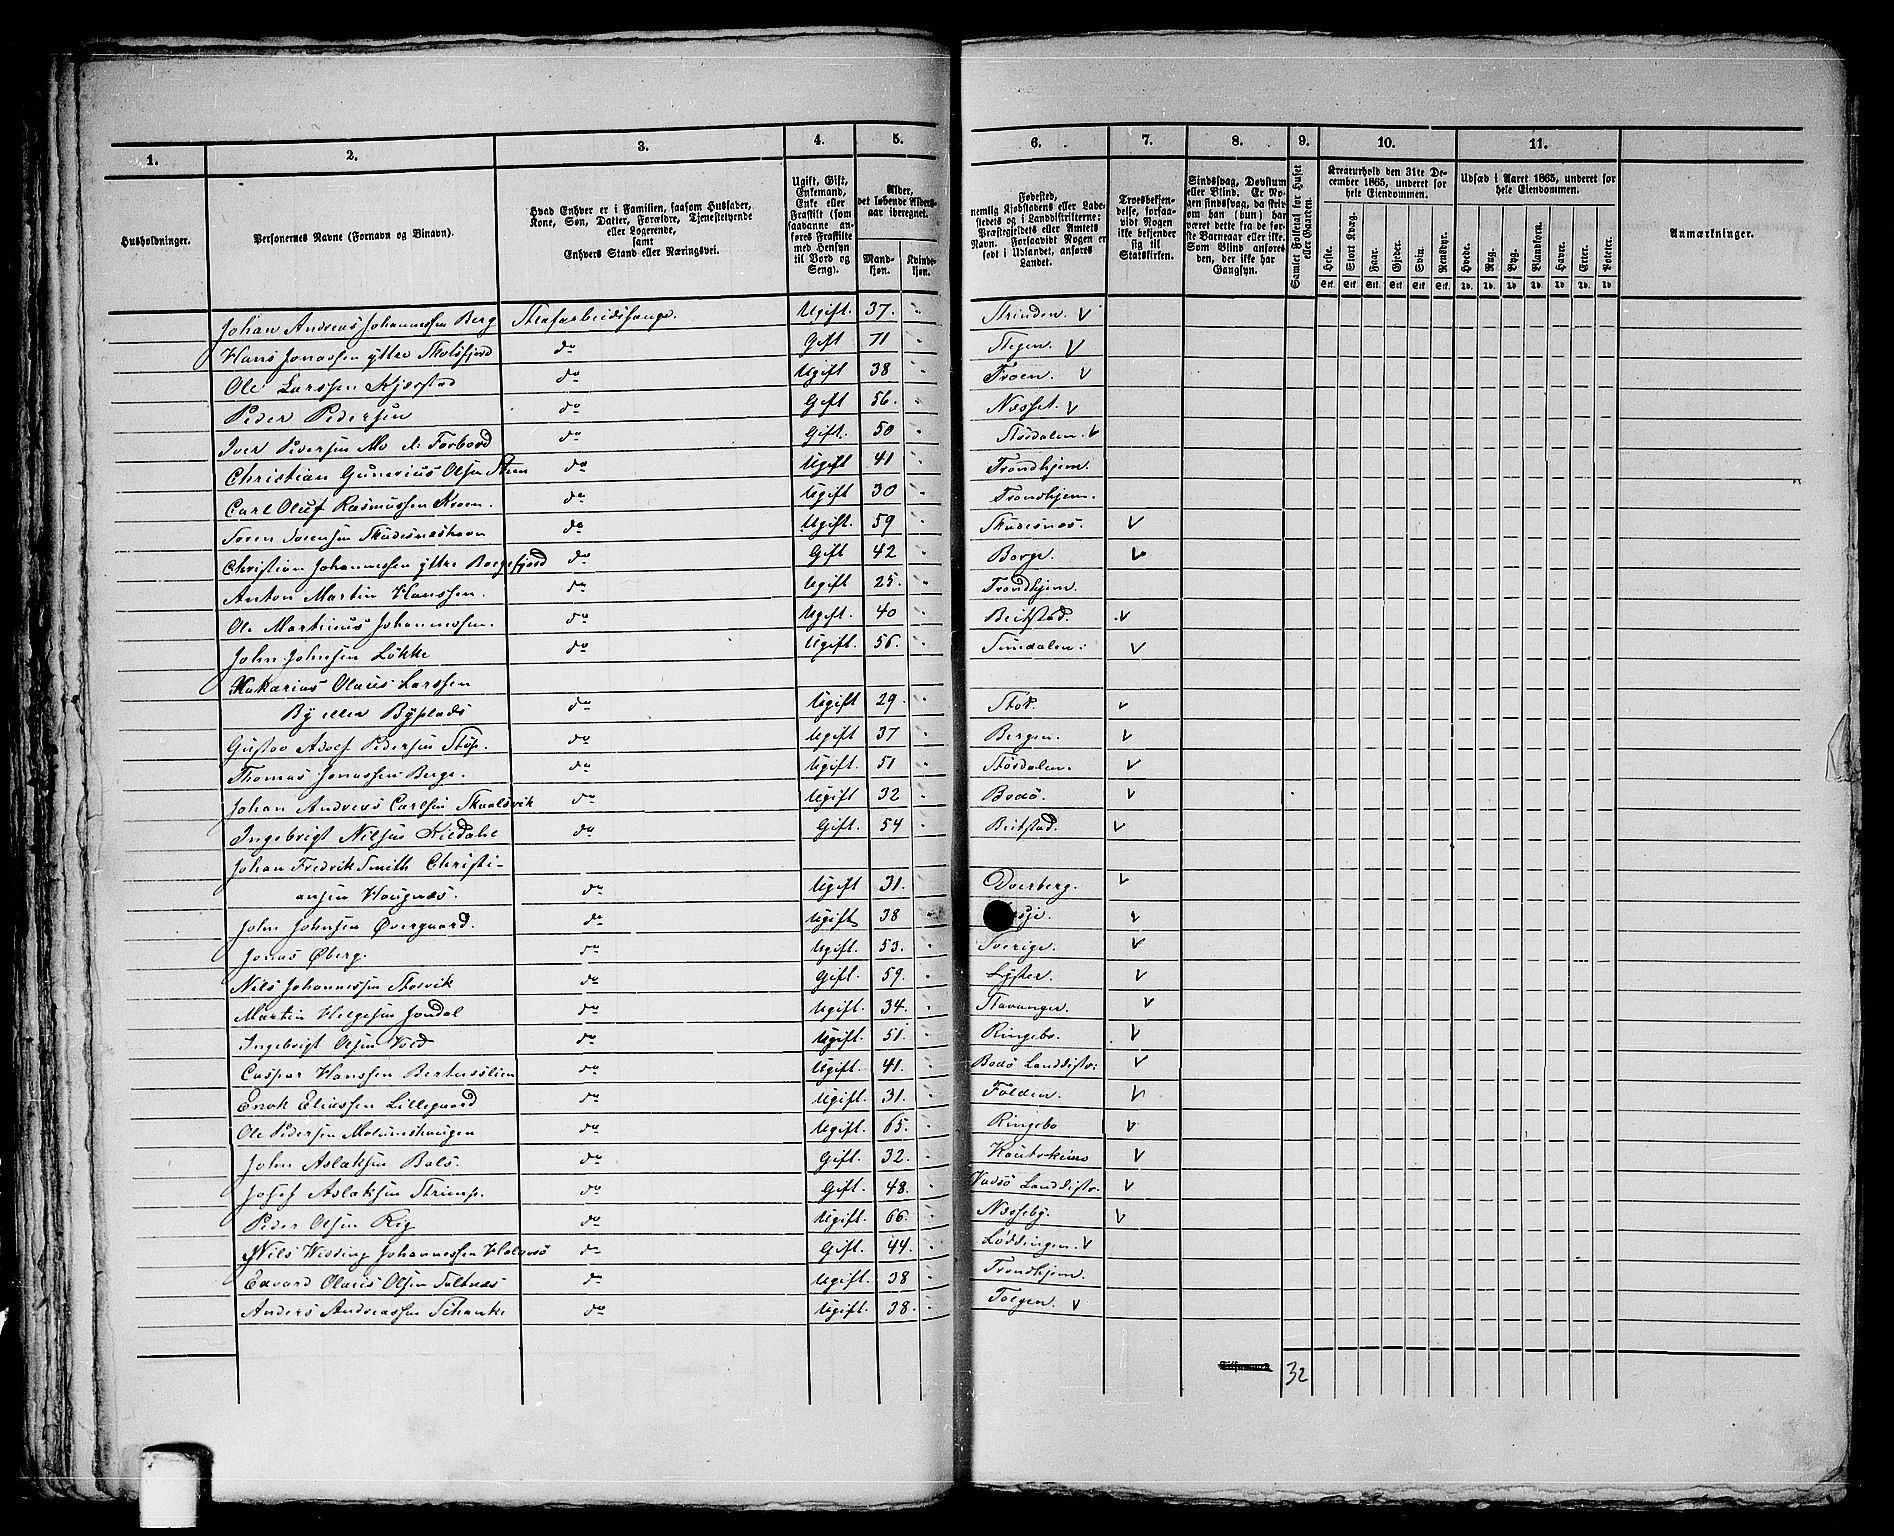 1. 2. 3. 4. 5. 6. 7. 8. 9. 10. 11.
Husholdninger.
Personernes Navne (Fornavn og Binavn).
Hvad Enhver er i Familien, saasom Husfader,
Kone, Søn, Datter, Forældre, Tjenestetyende
eller Logerende,
samt
Enhvers Stand eller Næringsvei.
Ugift, Gift,
Enkemand,
Enke eller
Fraskilt (som
saadanne an-
føres Fraskilte
med Hensyn
til Bord og
Seng).
Alder,
det løbende Alders-
aar iberegnet.
Mand-
kjøn.
Kvinde-
kjøn.
Fødested,
nemlig Kjøbstadens eller Lade-
stedets og i Landdistrikterne:
Præstegjeldets eller Amtets
Navn. Forsaavidt Nogen er
født i Udlandet, anføres
Landet.
Troesbekjen-
delse, forsaa-
vidt Nogen
ikke bekjender
sig til
Statskirken.
Sindssvag, Døvstum
eller Blind. Er No-
gen sindssvag, da skriv
om han (hun) har
været dette fra de
første Barneaar eller ikke.
Som Blind anføres
den, der ikke har
Gangsyn.
Samlet Folketal for Huset
eller Gaarden.
Kreaturhold den 31te De-
cember 1865, underet for
hele Eiendommen.
Heste. Stort Kvæg. Faar. Gjeder. Svin. Rensdyr.
Stk. Stk. Stk. Stk. Stk. Stk.
Udsæd i Aaret 1865, underet for
hele Eiendommen.
Hvede. Rug. Byg. Blandkorn. Havre. Erter. Poteter.
Td. Td. Td. Td. Td. Td. Td.
Anmærkninger.
Johan Andreas Johannessen Berg Strafarbeidsfange. Ugift. 37. " Strinden. V
Hans Jonassen ytre Skotsfjord do Gift 71 " Stegen. V
Ole Larssen Kjerstad do Ugift 38 " Froen. V
Peder Pedersen do Gift 56. " Næsset. V
Iver Pedersen Mo el. Forbord do Gift. 50 " Størdalen. V
Christian Gunerius Olsen Steen do Ugift 41 " Trondhjem.
Carl Oluf Rasmussen Kroen. do Ugift 30 " Trondhjem.
Søren Sørensen Skudesnæshavn do Ugift. 59 " Skudesnæs. V
Christian Johannessen ytre Borgefjord do Gift 42 " Borge. V
Anton Martin Hanssen. do Ugift 25. " Trondhjem.
Ole Martinus Johannessen. do Ugift. 40 " Beitstad. V
John Johnsen Løkke do Ugift. 56. " Sundalen. V
Zakarias Olaus Larssen
By eller Byplads do Ugift 29. " Stod. V
Gustav Adolf Pedersen Støp. do Ugift 37 " Bergen. V
Thomas Jonassen Berge. do Ugift. 51 " Størdalen. V
Johan Andreas Carlsen Skaalsvik do Ugift 32 " Bodø. V
Ingebrigt Nilsen Kildahl do Gift. 54 " Beitstad. V
Johan Fredrik Smith Christi-
ansen Haugnæs. do Ugift 31. " Dverberg. V
John Johnsen Øvergaard. do Ugift 38 " V
Jonas Øberg. do Ugift. 53. " Sverige. V
Nils Johannessen Storvik do Gift. 59. " Lyster. V
Martin Helgesen Jondal do Ugift. 34. " Stavanger. V
Ingebrigt Olsen Vold do Ugift. 51. " Ringebo. V
Caspar Hanssen Bertnesslien do Ugift. 41. " Bodø Landdistr: V
Enok Eliassen Lillegaard do Ugift. 31. " Folden. V
Ole Pedersen Molunshaugen do Ugift. 65. " Ringebo V
John Aslaksen Bals. do Gift. 32. " Kautokeino V
Josef Aslaksen Strimp. do Gift. 48. " Vadsø Landdistr. V
Peder Olsen Rig do Ugift. 66. " Næsseby. V
Nils Wisding Johannessen Halsnø do Gift. 44. " Løddingen. V
Edvard Olaus Olsen Saltnæs do Ugift. 38 " Trondhjem.
Anders Andreassen Schanke do Ugift. 38. " Tolgen. V
32